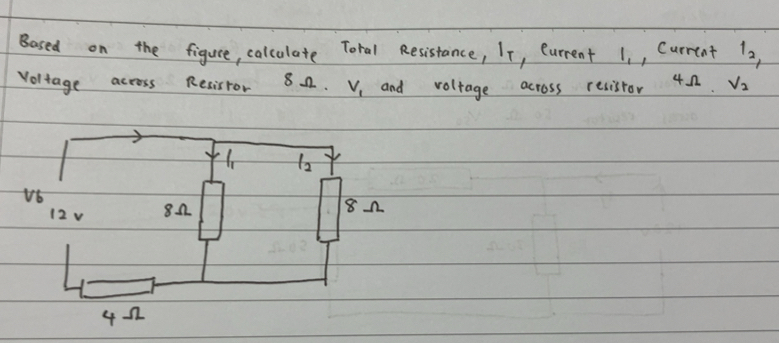 Based on the figure, calculate Total Resistance, IT, Current I1, Current I2,
Voltage across Resistor 8Ω. V1 and voltage across resistor 4Ω. V2
I1 I2
Vb
12 v
8Ω
8Ω
4Ω